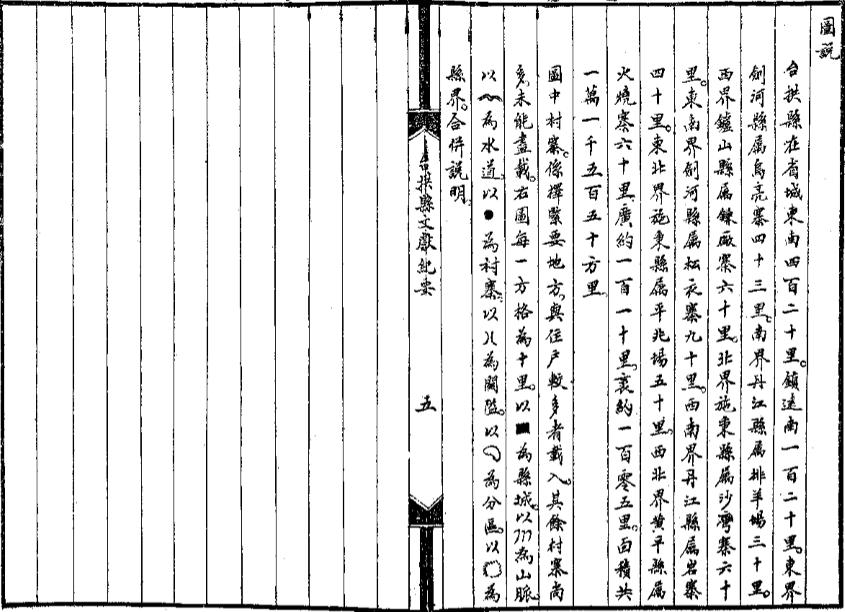 圖說
台拱縣在省城東南四百二十里。鎮遠南一百二十里。東界
劍河縣屬烏亮寨四十三里。南界丹江縣屬排羊場三十里。
西界鑪山縣屬鍊廠寨六十里。北界施秉縣屬沙灣寨六十
里。東南界劍河縣屬松衣寨九十里。西南界丹江縣屬岩寨
四十里。東北界施秉縣屬平兆場五十里。西北界黃平縣屬
火燒寨六十里。廣約一百一十里。袤約一百零五里。面積共
一萬一千五百五十方里。
圖中村寨。係擇緊要地方。與住戶較多者載入。其餘村寨尚
多。未能盡載。右圖每一方格為十里。以■為縣城。以為山脈。
以為水道。以●為村寨。以八為關隘。以為分區。以為
縣界。合併說明。
台拱縣文獻紀要
五